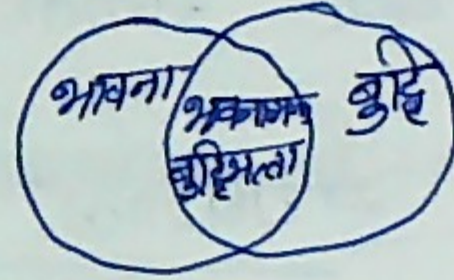 भावना
भावनात्मक
बुद्धिमत्ता
बुद्धि